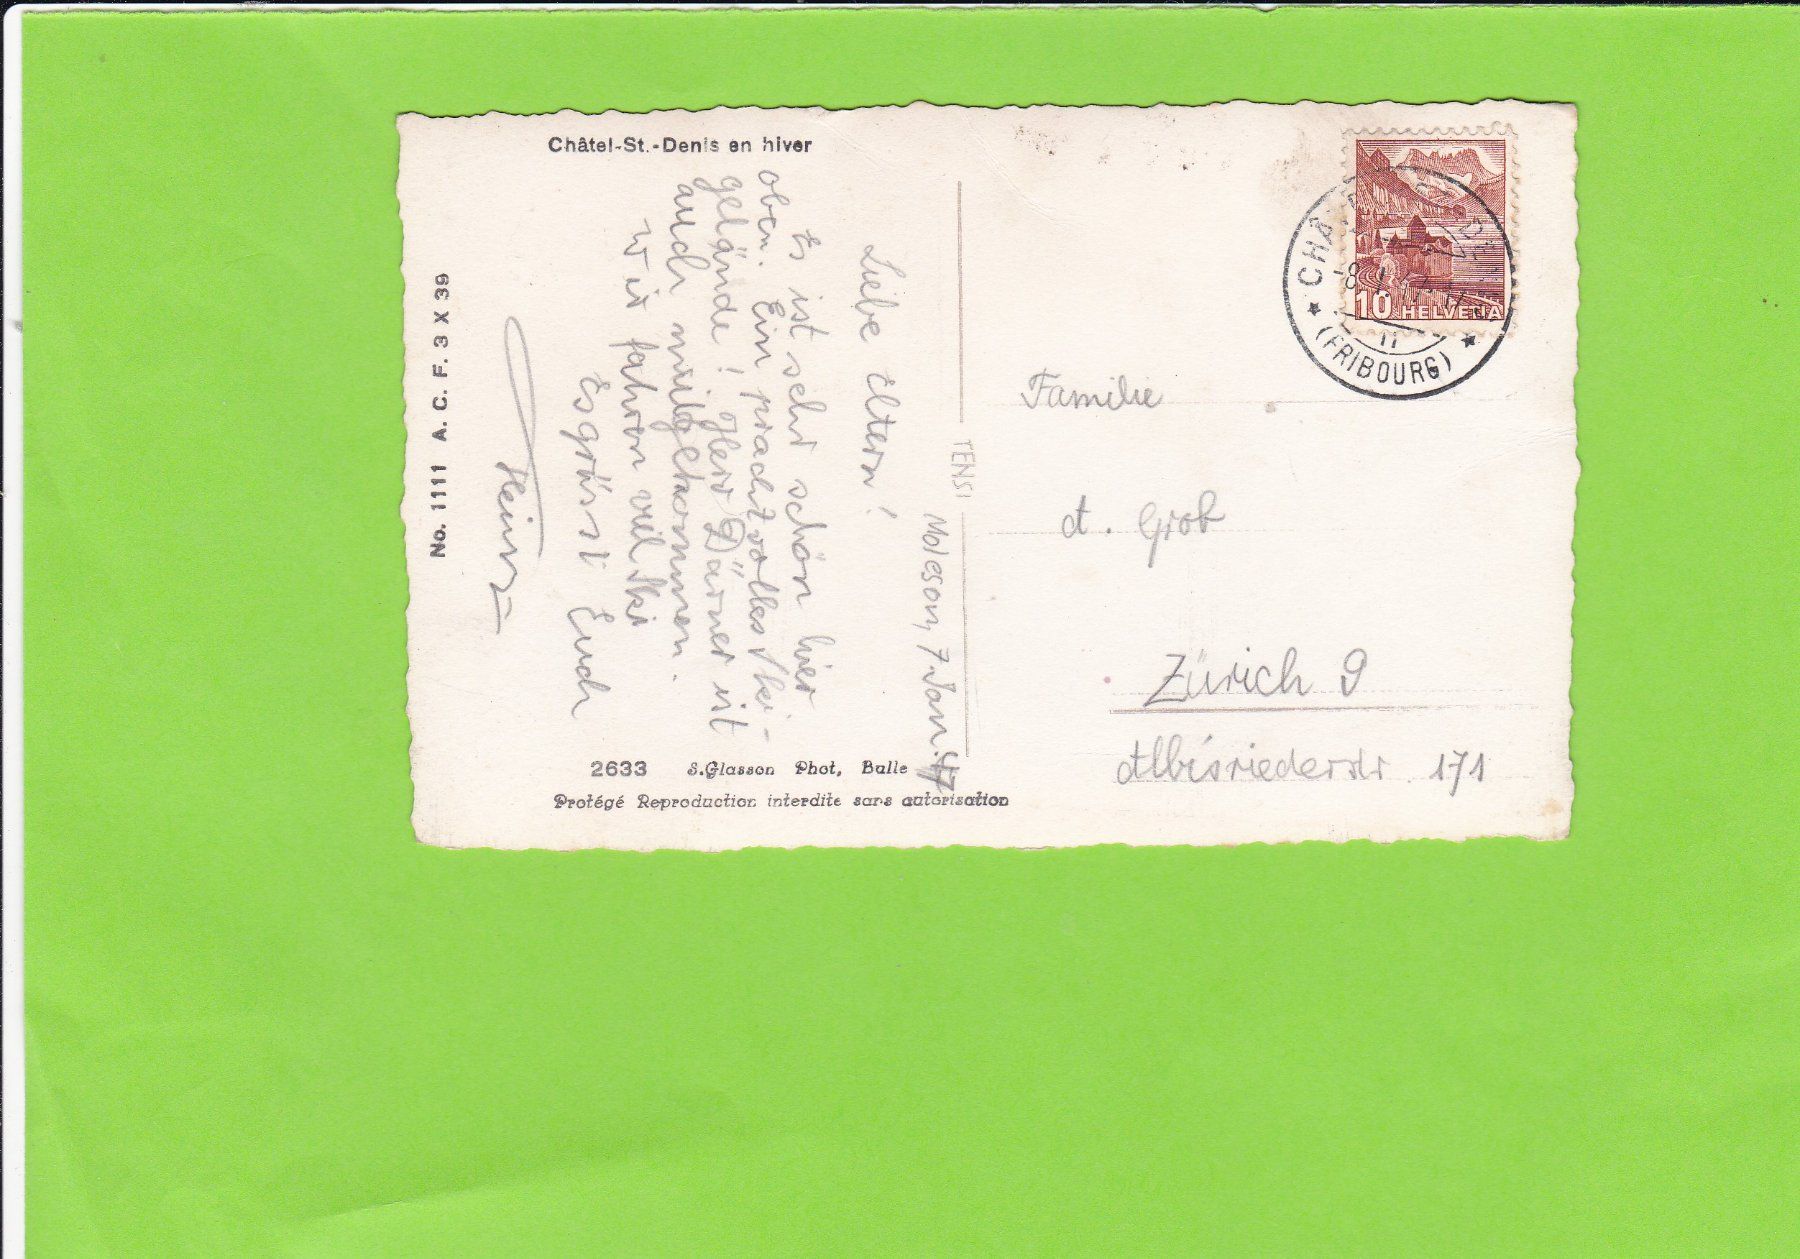 Châtel-St.-Denis en hiver
No. 1111 A. C. F. 3 X 39
Moleson, 7. Jan. 47
Liebe Eltern!
Es ist sehr schön hier
oben. Ein prachtvolles Ski-
gelände! Herr Därner ist
auch mitgekommen.
Wir fahren viel Ski
Es grüsst Euch
Heinz
2633 S. Glasson Phot, Bulle
Protégé Reproduction interdite sans autorisation
TENSI
10 HELVETIA
CHÂTEL
(FRIBOURG)
Familie
A. Grob
Zürich 9
Albisriederstr 171